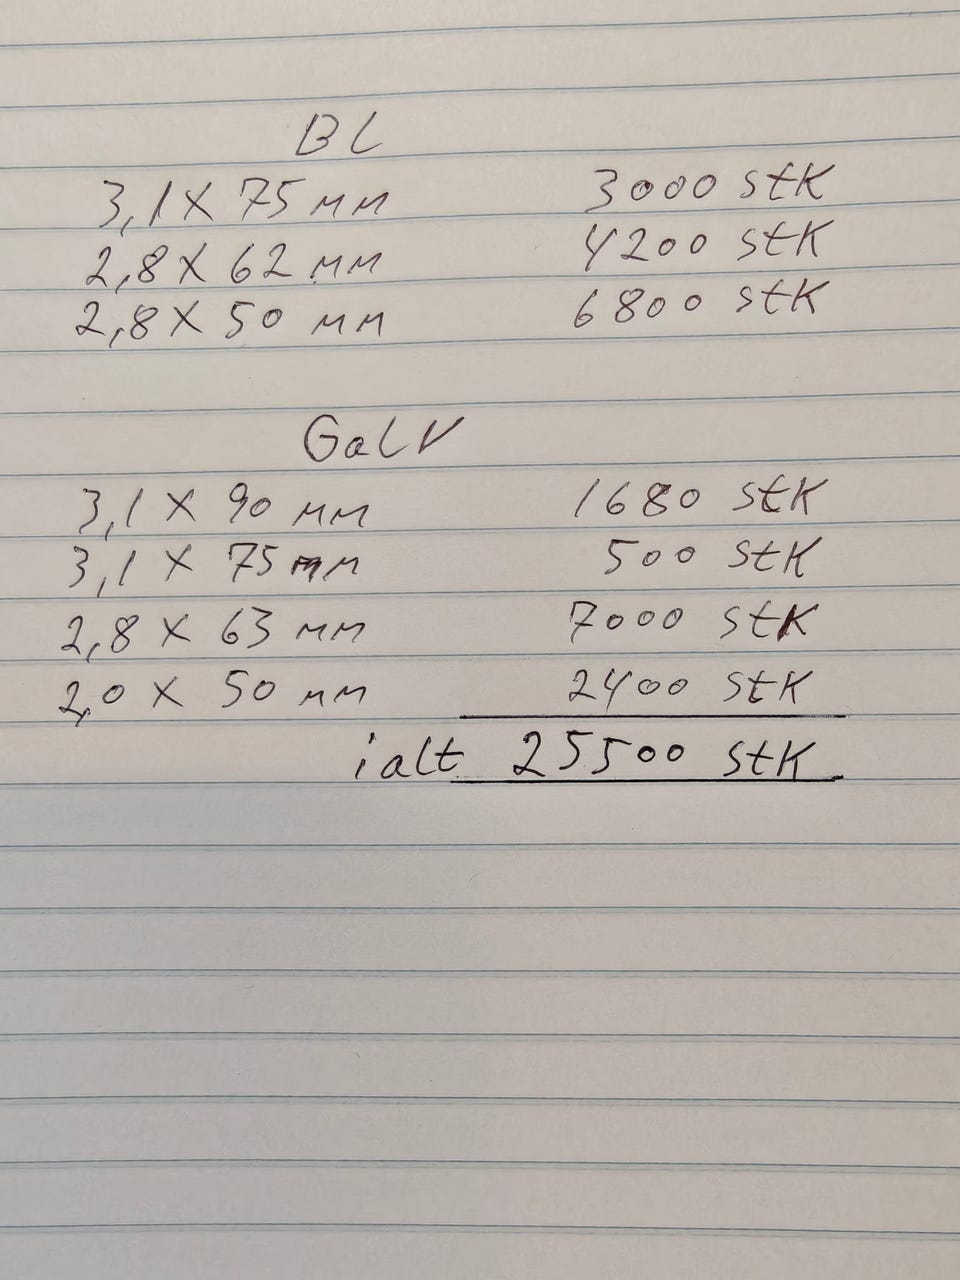 BL
3,1 X 75 mm 3000 stK
2,8 X 62 mm 4200 stK
2,8 X 50 mm 6800 stK
GaLV
3,1 X 90 mm 1680 stK
3,1 X 75 mm 500 stK
2,8 X 63 mm 7000 stK
2,0 X 50 mm 2400 stK
ialt 25500 stK